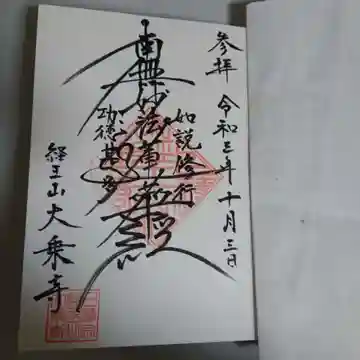 参拝 令和三年十月三日
如説修行
南無妙法蓮華経
功徳甚多
経王山大乗寺